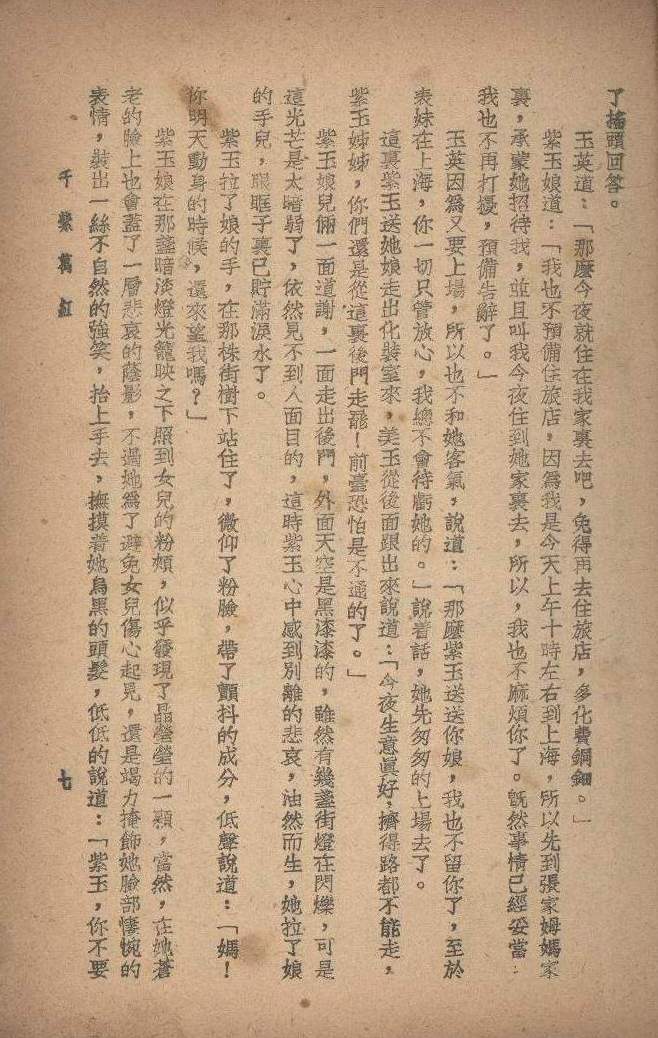 了搖頭回答。
玉英道：「那麼今夜就住在我家裏去吧，免得再去住旅店，多化費銅鈿。」
紫玉娘道：「我也不預備住旅店，因爲我是今天上午十時左右到上海，所以先到張家姆媽家
裏，承蒙她招待我，並且叫我今夜住到她家裏去，所以，我也不麻煩你了。旣然事情已經妥當，
我也不再打擾，預備告辭了。」
玉英因爲又要上場，所以也不和她客氣，說道：「那麼紫玉送送你娘，我也不留你了，至於
表妹在上海，你一切只管放心，我總不會待虧她的。」說着話，她先匆匆的上場去了。
這裏紫玉送她娘走出化裝室來，美玉從後面跟出來說道：「今夜生意眞好，擠得路都不能走，
紫玉姊姊，你們還是從這裏後門走罷！前臺恐怕是不通的了。」
紫玉娘兒倆一面道謝，一面走出後門，外面天空是黑漆漆的，雖然有幾盞街燈在閃爍，可是
這光芒是太暗弱了，依然見不到人面目的，這時紫玉心中感到別離的悲哀，油然而生，她拉了娘
的手兒，眼眶子裏已貯滿淚水了。
紫玉拉了娘的手，在那株街樹下站住了，微仰了粉臉，帶了顫抖的成分，低聲說道：「媽！
你明天動身的時候，還來望我嗎？」
紫玉娘在那盞暗淡燈光籠映之下照到女兒的粉頰，似乎發現了晶瑩瑩的一顆，當然，在她蒼
老的臉上也會蓋了一層悲哀的蔭影，不過她爲了避免女兒傷心起見，還是竭力掩飾她臉部悽惋的
表情，裝出一絲不自然的強笑，抬上手去，撫摸着她烏黑的頭髮，低低的說道：「紫玉，你不要
千紫萬紅
七